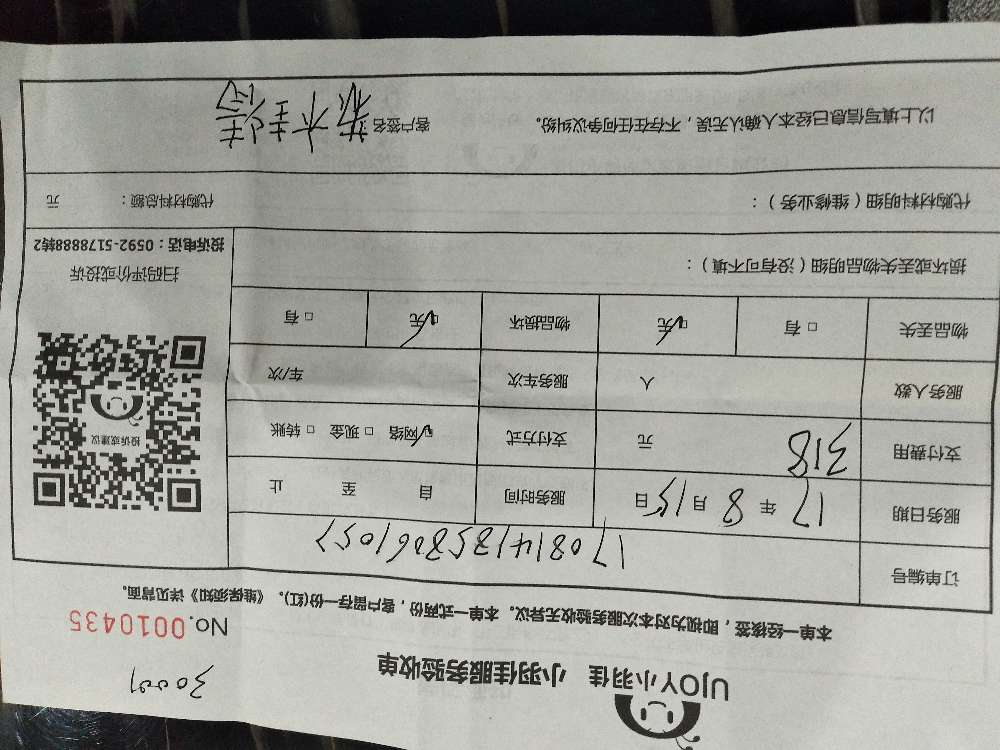 30009
UJOY小羽佳 小羽佳服务验收单
No.0010435
本单一经接签，即视为对本次服务验收无异议。本单一式两份，客户留存一份(红)。《维保须知》详见背面。
订单编号 1708141358061057
服务日期 17年8月15日 服务时间 自 至 止
支付费用 318 元 支付方式 ☑网络 □现金 □转账
服务人数 人 服务车次 车/次
物品丢失 □有 ☑无 物品损坏 ☑无 □有
投诉或建议
扫码评价或投诉
投诉电话：0592-5178888转2
损坏或丢失物品明细（没有可不填）：
代购材料明细（维修业务）： 代购材料总额： 元
以上填写信息已经本人确认无误，不存在任何争议纠纷。 客户签名